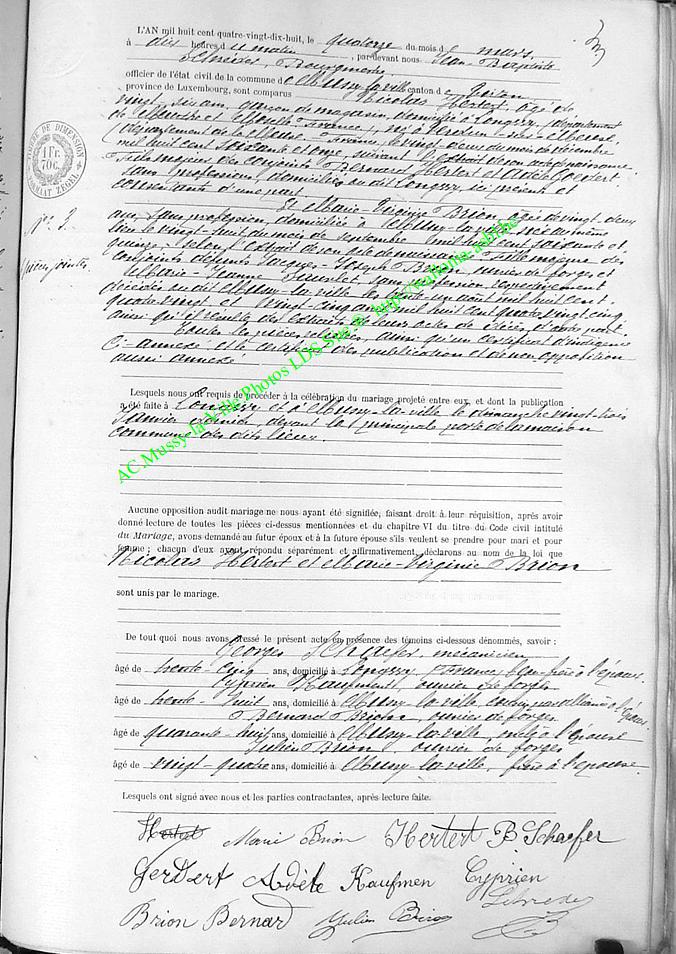 L'AN mil huit cent quatre-vingt-dix-huit, le quatorze du mois de mars,
à dix heures du matin, par devant nous Jean-Baptiste
Schréder, Bourgmestre
officier de l'état civil de la commune de Mussy-la-ville canton de
province de Luxembourg, sont comparus Nicolas Hertert, âgé de
vingt-six ans, garçon de magasin, domicilié à Longwy, (département
de Meurthe et Moselle France), né à Verdun-sur-Meuse
(département de la Meuse, France, le vingt-deux du mois de décembre
mil huit cent soixante et onze, suivant l'extrait de son acte de naissance.
Fils majeur des conjoints Bernard Hertert et Adèle
sans profession, domiciliés au dit Longwy, ici présents et
consentants d'une part
Et Marie-Virginie Brion, âgée de vingt-deux
ans, sans profession, domiciliée à Mussy-la-ville, née au même
lieu le vingt-huit du mois de septembre mil huit cent soixante et
quinze, selon l'extrait de son acte de naissance. Fille majeure des
conjoints défunts Jacques-Joseph Brion, ouvrier de forges et
Marie-Jeanne sans profession, respectivement
décédés au dit Mussy-la-ville le trente un août mil huit cent
quatre-vingt et vingt-cinq mil huit cent quatre vingt cinq
ainsi qu'il résulte des extraits de leurs actes de décès, d'autre part.
Toutes les pièces relatées, ainsi qu'un certificat d'indigence
ci-annexé et le certificat des publication et de non opposition
aussi annexé
TIMBRE DE DIMENSION
1 Fr.
70 c.
FORMAAT ZEGEL
N° 3.
pièces jointes
Lesquels nous ont requis de procéder à la célébration du mariage projeté entre eux, et dont la publication
a été faite à Longwy et à Mussy-la-ville le dimanche vingt-trois
Janvier dernier, devant la principale porte de la maison
commune des dits lieux.
Aucune opposition audit mariage ne nous ayant été signifiée, faisant droit à leur réquisition, après avoir
donné lecture de toutes les pièces ci-dessus mentionnées et du chapitre VI du titre du Code civil intitulé
du Mariage, avons demandé au futur époux et à la future épouse s'ils veulent se prendre pour mari et pour
femme ; chacun d'eux ayant répondu séparément et affirmativement, déclarons au nom de la loi que
Nicolas Hertert et Marie-Virginie Brion
sont unis par le mariage.
De tout quoi nous avons dressé le présent acte en présence des témoins ci-dessous dénommés, savoir :
Georges Schaefer, mécanicien,
âgé de trente-cinq ans, domicilié à Longwy, France, beau-frère à l'époux.
Cyprien Kaufmen, ouvrier de forges
âgé de trente-huit ans, domicilié à Mussy-la-ville, cousin par alliance à l'épouse.
Bernard Brion, ouvrier de forges
âgé de quarante-huit ans, domicilié à Mussy-la-ville, oncle à l'épouse
Julien Brion, ouvrier de forges
âgé de vingt-quatre ans, domicilié à Mussy-la-ville, frère à l'épouse.
Lesquels ont signé avec nous et les parties contractantes, après lecture faite.
Hertert Marie Brion Hertert B. Schaefer
Gerbert Adèle Kaufmen Cyprien
Brion Bernard Julien Brion
AC.Mussy-la-Ville Photos LDS Site@ http://wallonia-asbl.be